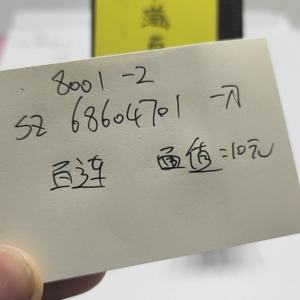 8001-2
SZ 68604701
百连 面值=10元